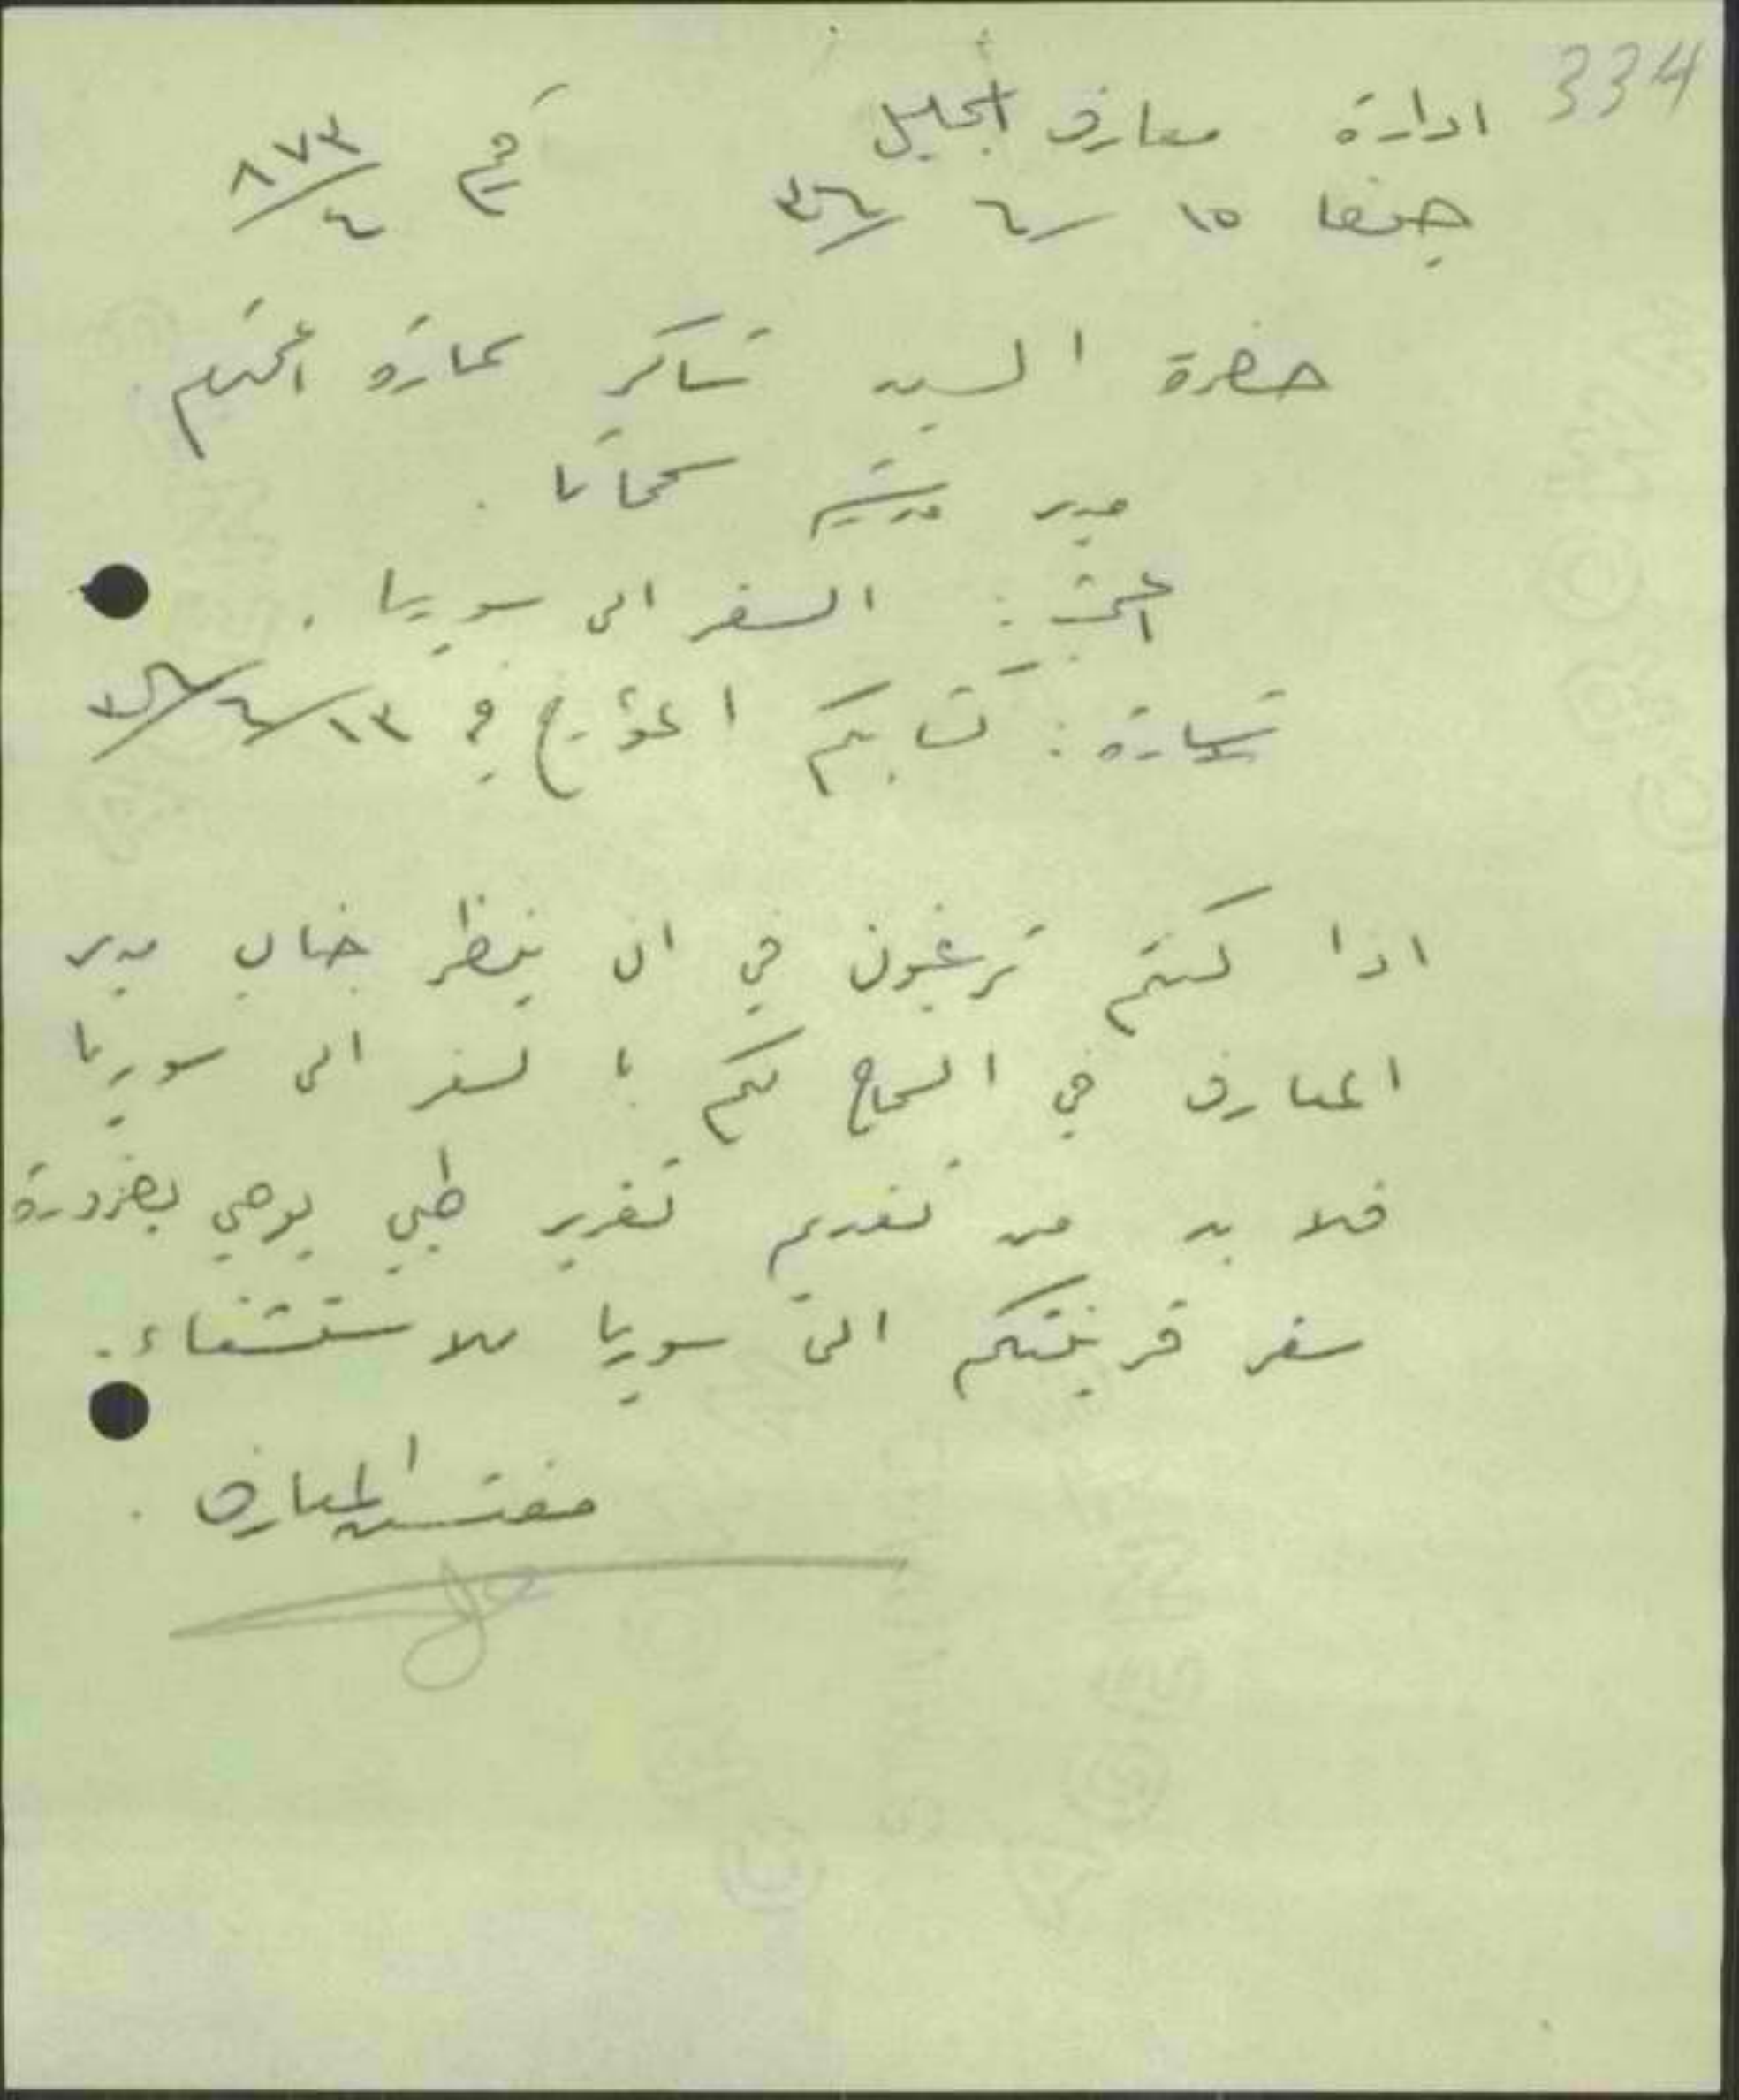 334
ادارة معارف الجليل
حيفا ١٥ / ٦ / ٣٦ رقم ٨٧٣/٤
حضرة السيد شاكر عمارة المحترم
مدير مدرسة سحماتا .
المبحث : السفر الى سوريا .
اشارة : كتابكم المؤرخ في ١٣/٦/٣٦
اذا كنتم ترغبون في ان ينظر جناب مدير
المعارف في السماح لكم بالسفر الى سوريا
فلا بد من تقديم تقرير طبي يوصي بضرورة
سفر قرينتكم الى سوريا للاستشفاء .
مفتش المعارف .